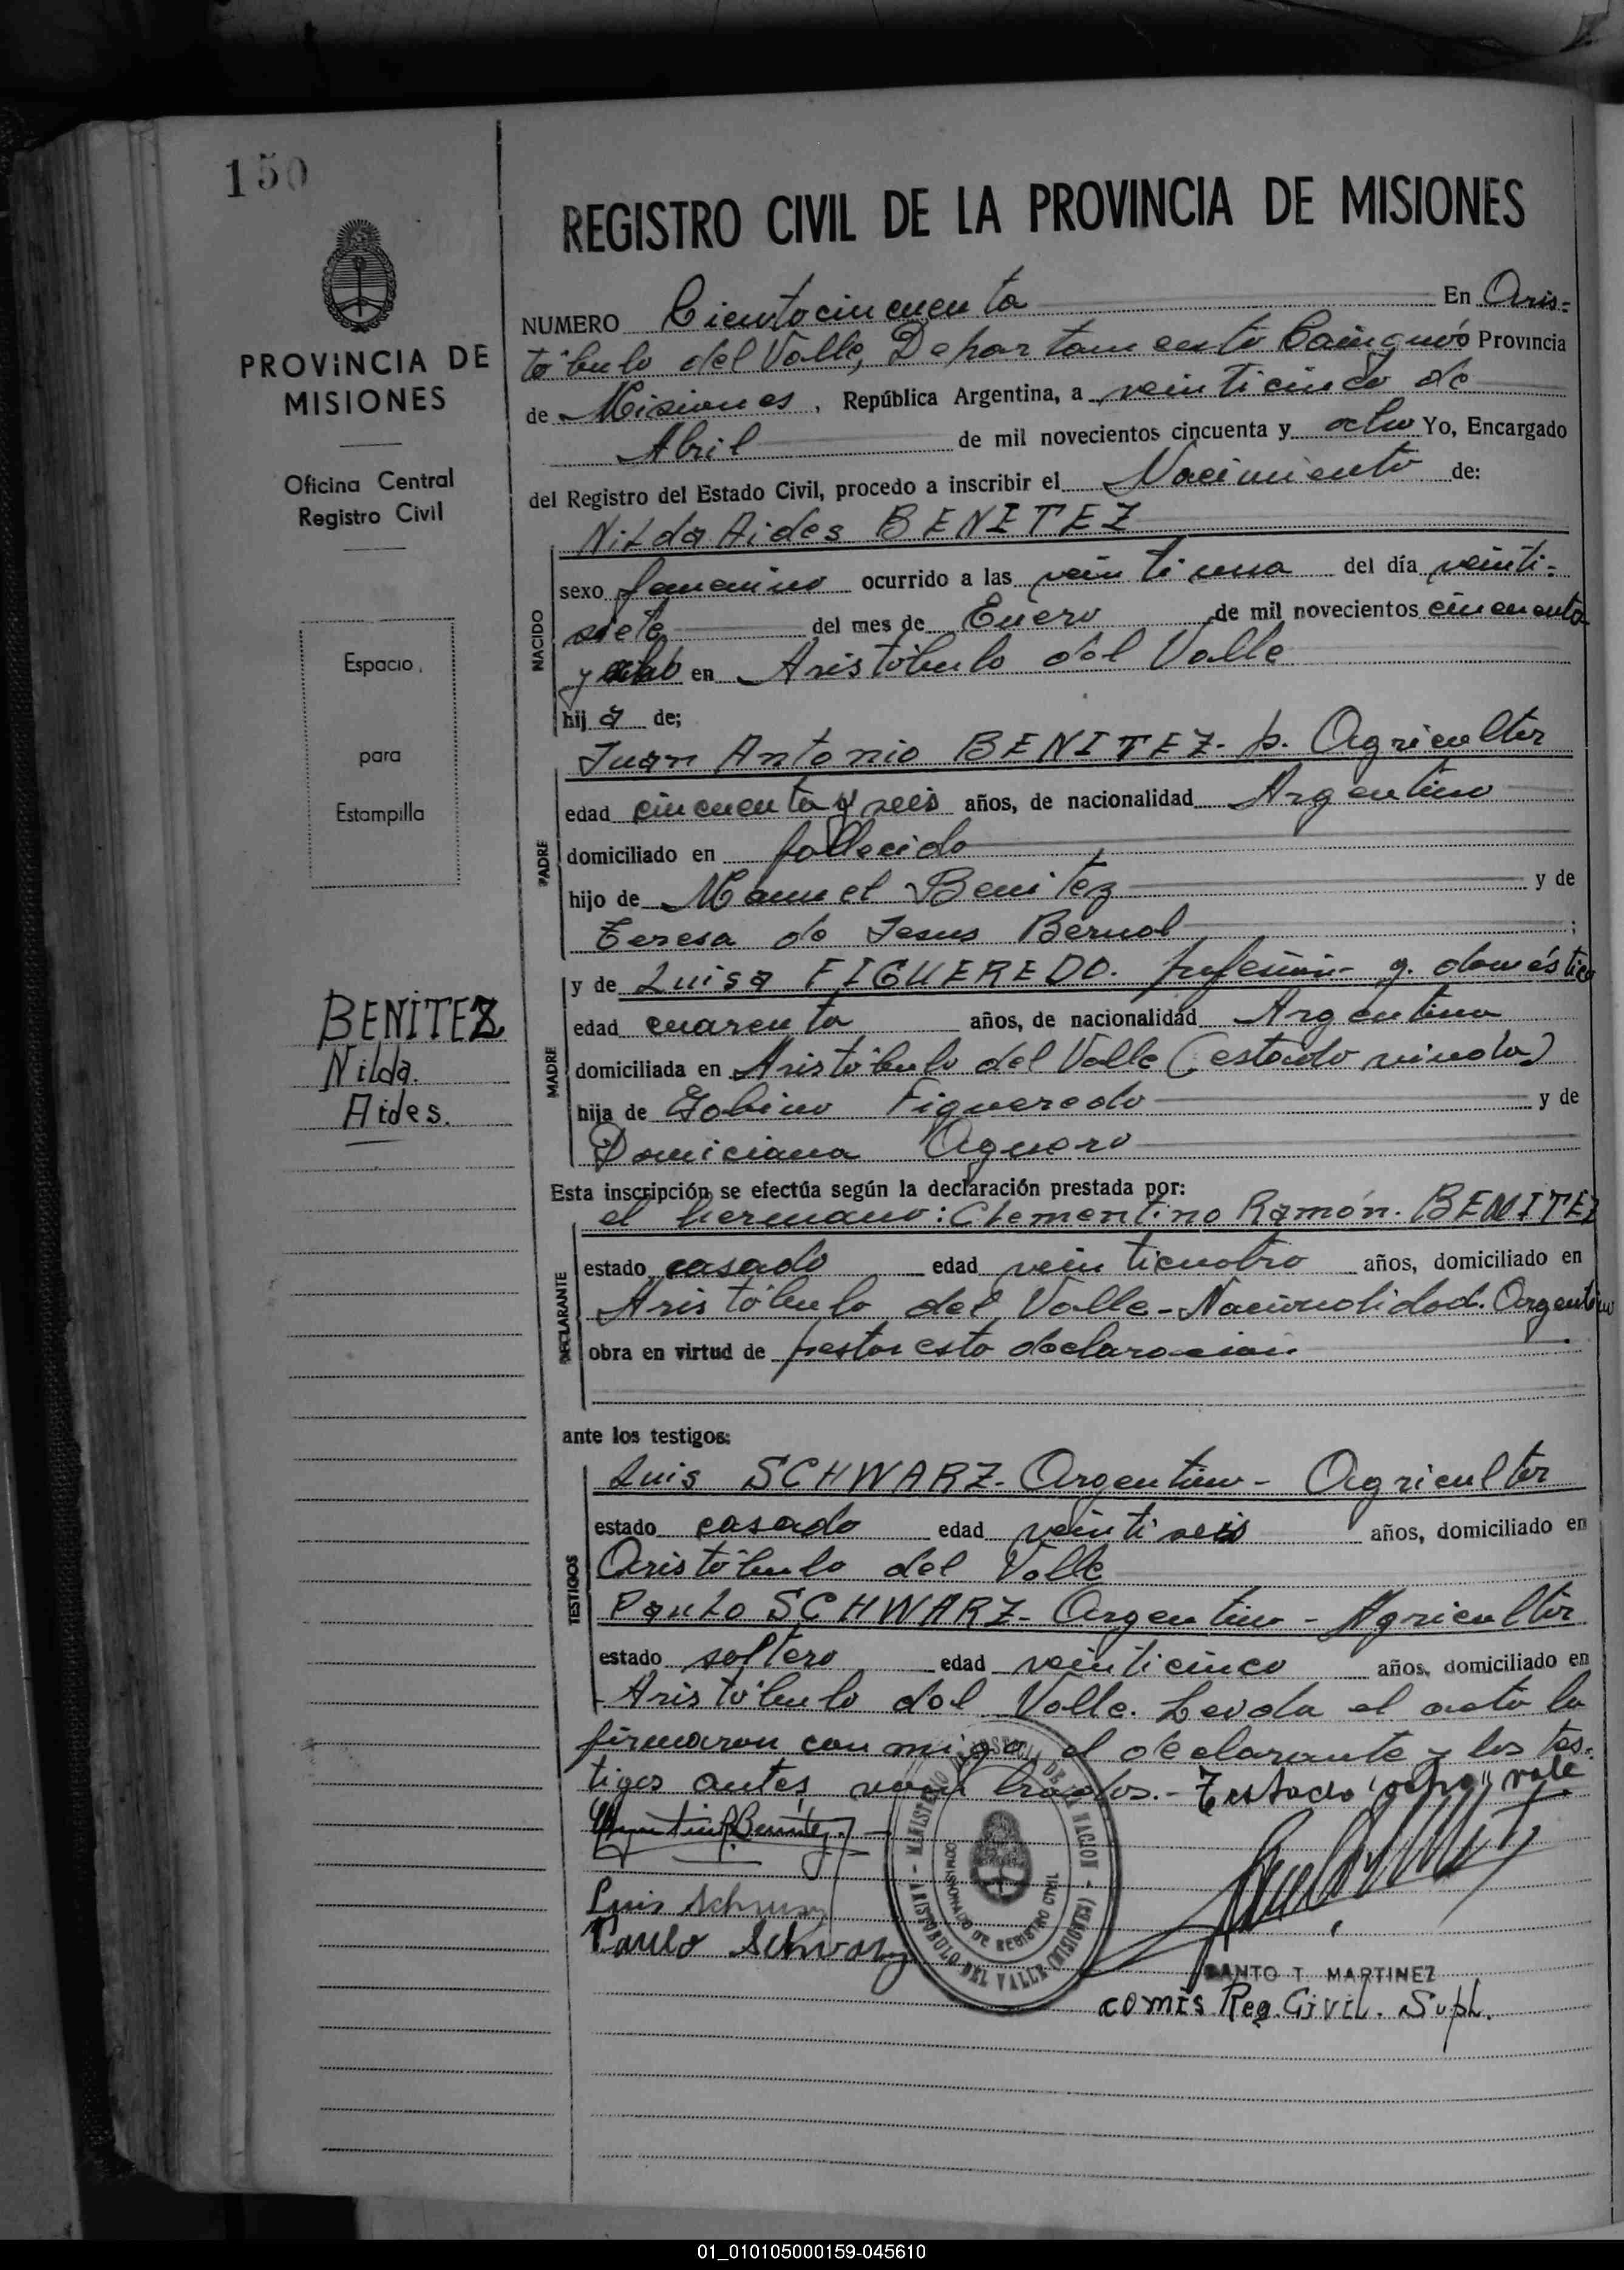 150
PROVINCIA DE
MISIONES
Oficina Central
Registro Civil
Espacio
para
Estampilla
BENITEZ
Nilda.
Aides.
REGISTRO CIVIL DE LA PROVINCIA DE MISIONES
NUMERO Ciento cincuenta En Aris-
tóbulo del Valle, Departamento Cainguás Provincia
de Misiones, República Argentina, a veinticinco de
Abril de mil novecientos cincuenta y ocho Yo, Encargado
del Registro del Estado Civil, procedo a inscribir el Nacimiento de:
Nilda Aides BENITEZ
NACIDO
sexo femenino ocurrido a las veintiuna del día veinti-
siete del mes de Enero de mil novecientos cincuenta
y ocho en Aristóbulo del Valle
hija de;
Juan Antonio BENITEZ- p. Agricultor
PADRE
edad cincuenta y seis años, de nacionalidad Argentino
domiciliado en fallecido
hijo de Manuel Benitez y de
Teresa de Jesus Bernal;
y de Luisa FIGUEREDO. profesión- q. doméstico
MADRE
edad cuarenta años, de nacionalidad Argentina
domiciliada en Aristóbulo del Valle (estado viuda)
hija de Gabino Figueredo y de
Domiciana Aguero
Esta inscripción se efectúa según la declaración prestada por:
el hermano: Clementino Ramón. BENITEZ
DECLARANTE
estado casado edad veinticuatro años, domiciliado en
Aristóbulo del Valle-Nacionalidad. Argentino
obra en virtud de prestar esta declaracion
ante los testigos:
TESTIGOS
Luis SCHWARZ- Argentino- Agricultor
estado casado edad veintiseis años, domiciliado en
Aristóbulo del Valle
Paulo SCHWARZ- Argentino - Agricultor
estado soltero edad veinticinco años, domiciliado en
Aristóbulo del Valle. Leida el acta la
firmaron conmigo, el declarante y los tes-
tigos antes nombrados.- Testado "ocho" vale
Benitez
Luis Schwarz
Paulo Schwarz
MINISTERIO DE JUSTICIA DE LA NACION - ARISTOBULO DEL VALLE (MISIONES)
COMISIONADO DE REGISTRO CIVIL
SANTO T. MARTINEZ
COMIS Reg. Civil. Supl.
01_010105000159-045610